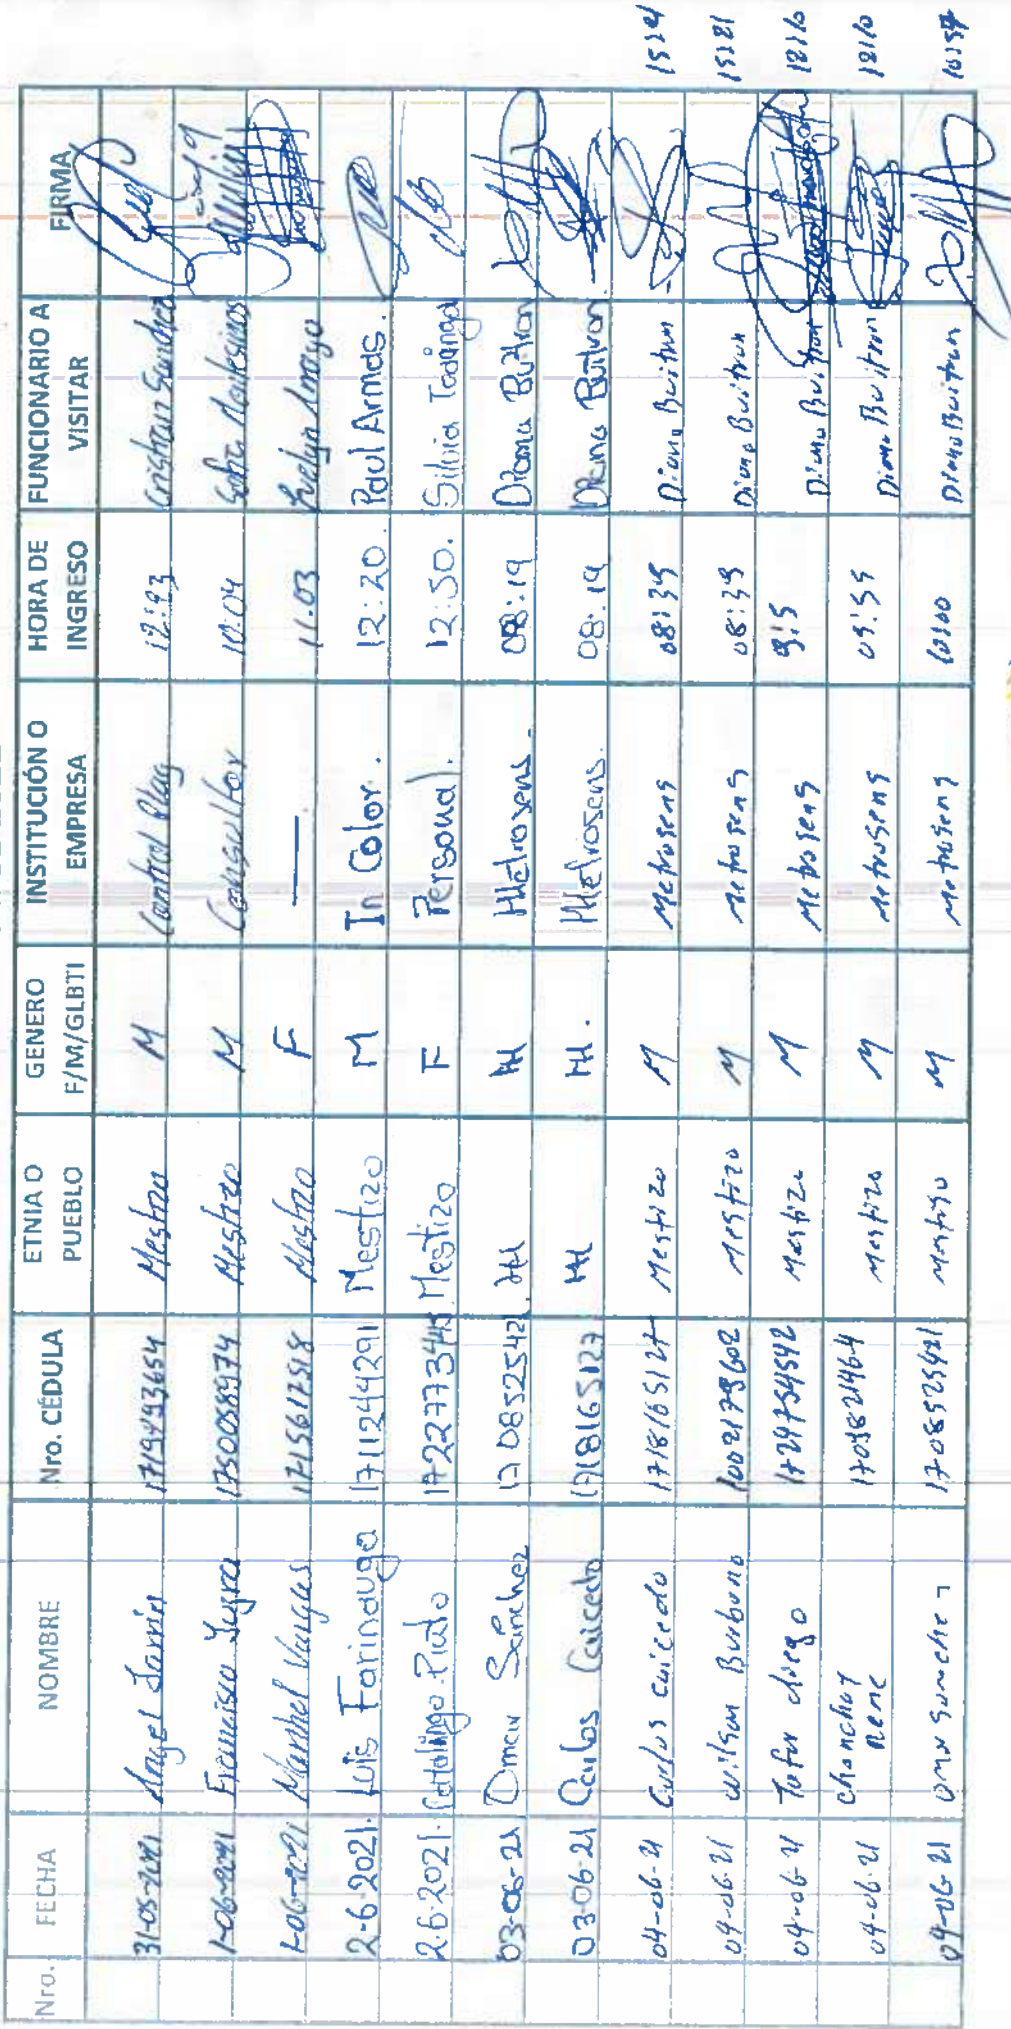 Nro. FECHA NOMBRE Nro. CÉDULA ETNIA O PUEBLO GENERO F/M/GLBTI INSTITUCIÓN O EMPRESA HORA DE INGRESO FUNCIONARIO A VISITAR FIRMA
31-05-2021 Angel 1719493654 Mestizo M Control Plag
1-06-2021 Francisco 1750058974 Mestizo M Consultor 10:04
1-06-2021 Maribel Vargas 1715617518 Mestizo F — 11:03 Evelyn Amaya
2-6-2021. Luis Farinango 1711244291 Mestizo M In Color. 12:20. Paul Armas.
2-6-2021. Catalina Prado Mestizo F Personal. 12:50. Silvia
03-06-21 Omar Sánchez 1708525421 M M Metrosens. 08:19 Diana Buitron
03-06-21 Carlos Caicedo 1718165127 M M. Metrosens. 08:19 Diana Buitron
04-06-21 Carlos caicedo 1718165127 Mestizo M Metroseng 08:35 Diana Buitron
04-06-21 wilson Burbano Mestizo M Metroseng Diana Buitron
04-06-21 diego 1724754542 Mestizo M Metroseng Diana Buitron
04-06-21 Rene Mestizo M Metroseng Diana Buitron 1210
04-06-21 Omar Sanchez M Metroseng 10:10 Diana Buitron